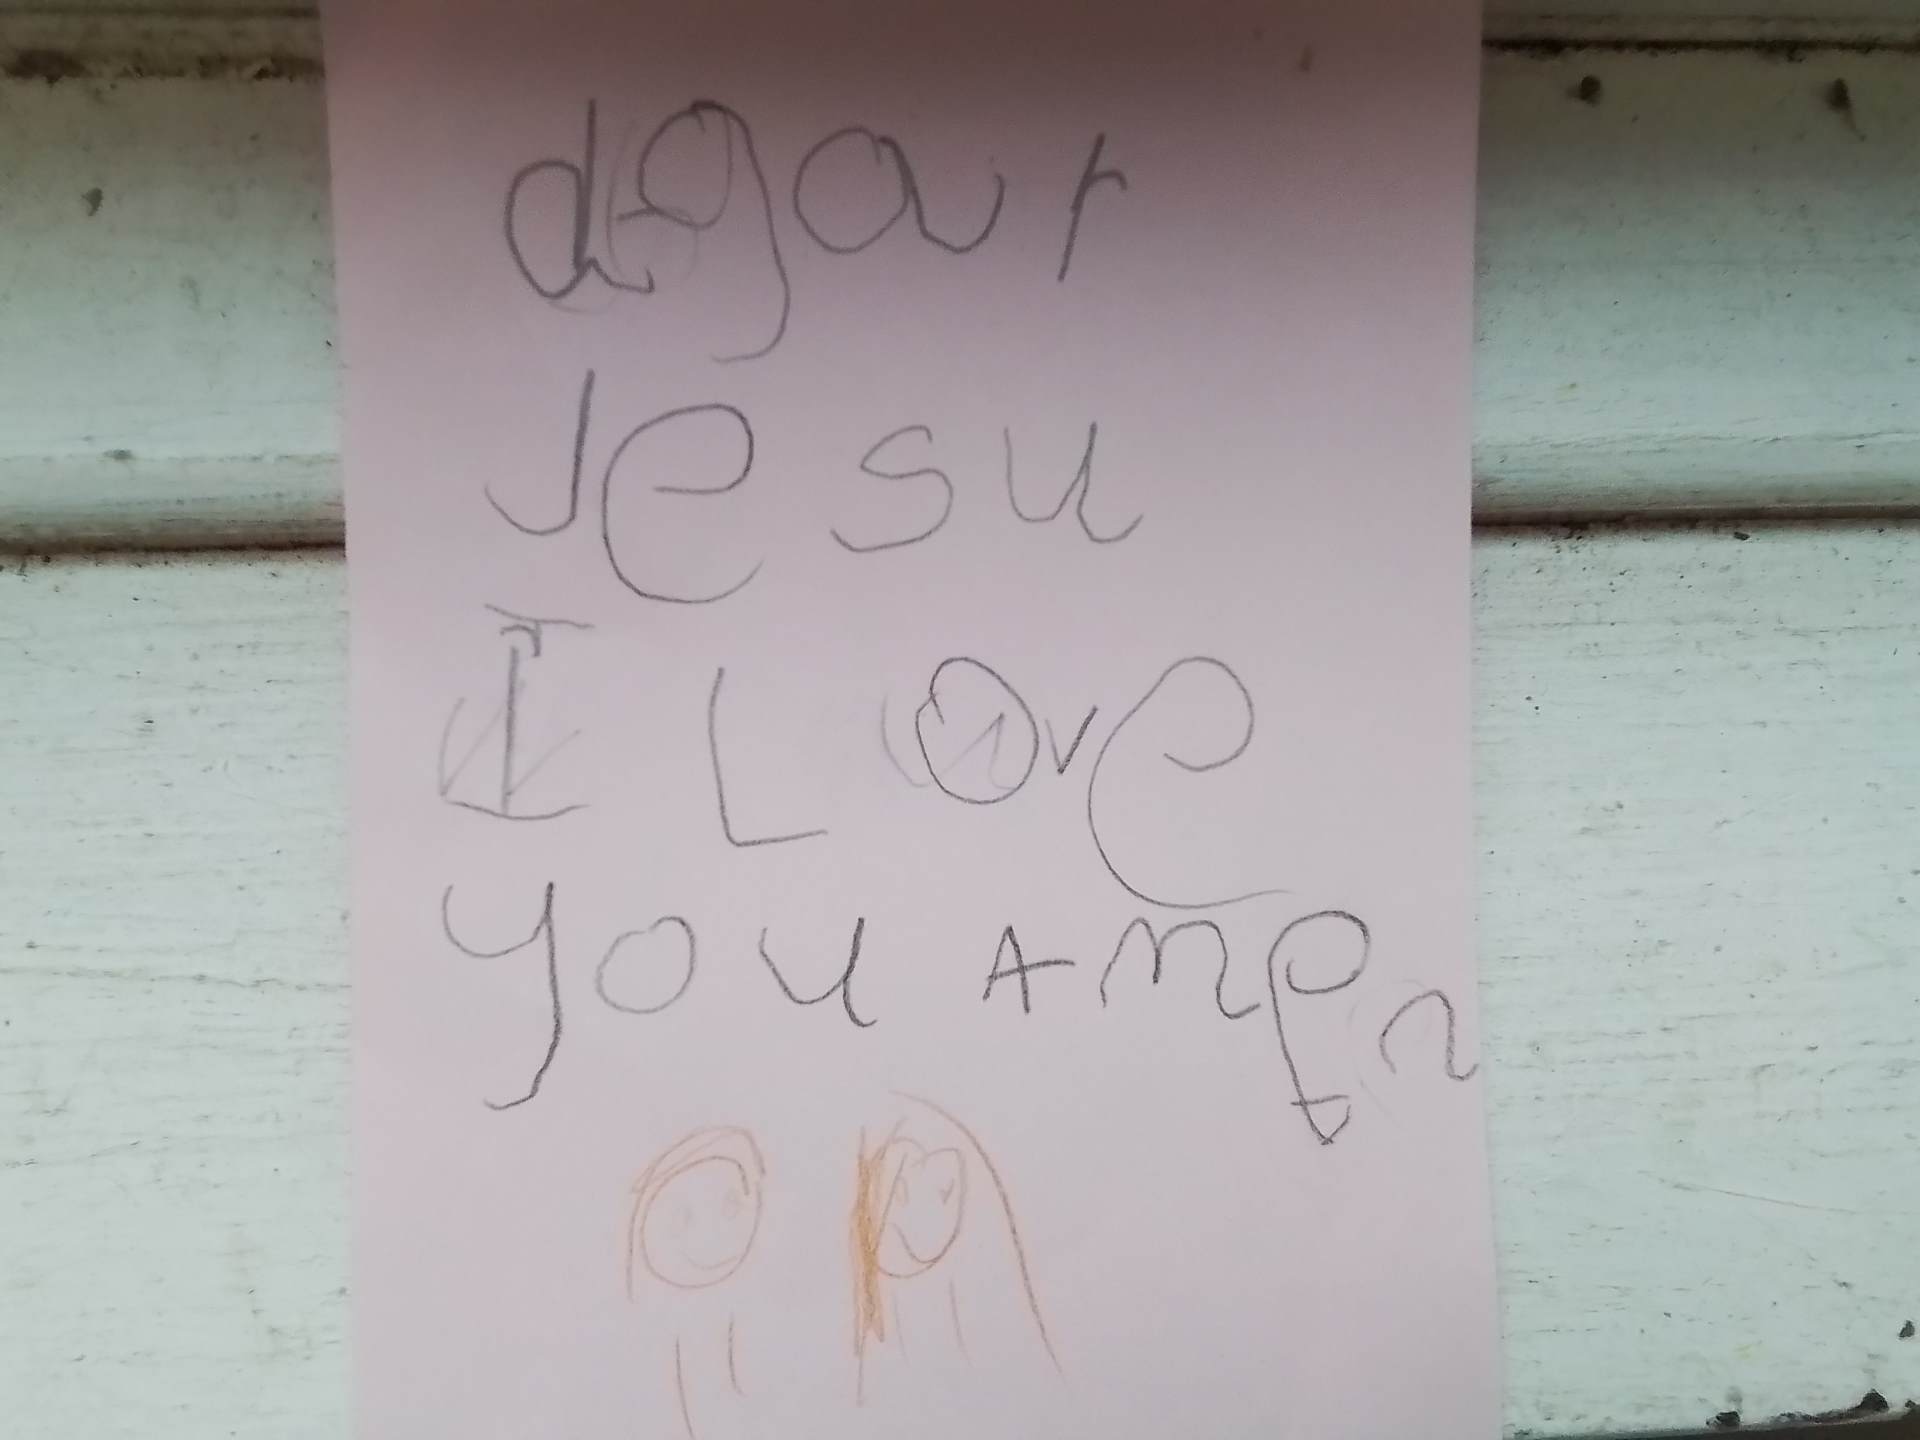 dear
Jesu
I Love
you Amen